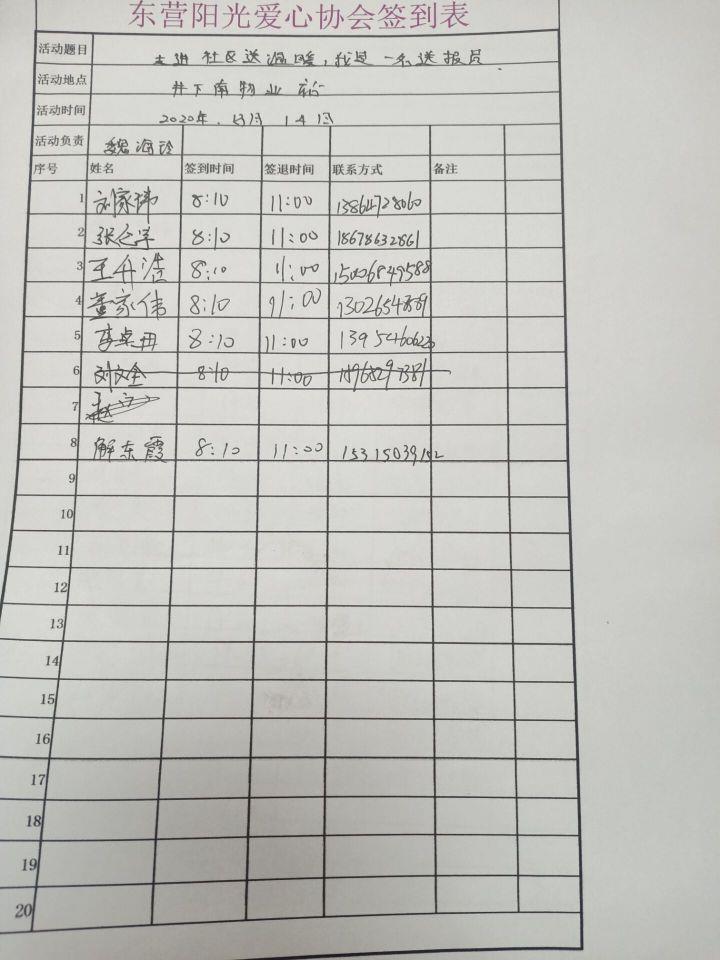 东营阳光爱心协会签到表
活动题目 走进社区送温暖，我是一名送报员
活动地点 井下南物业站
活动时间 2020年. 月 14日
活动负责 魏海玲
序号 姓名 签到时间 签退时间 联系方式 备注
1 刘家玮 8:10 11:00
2 8:10 11:00 18678632861
3 王升浩 8:10 11:00 15006849588
4 董家伟 8:10 11:00
5 李卓冉 8:10 11:00
6 刘文全 8:10 11:00
7 赵
8 解东霞 8:10 11:00 15315039152
9
10
11
12
13
14
15
16
17
18
19
20